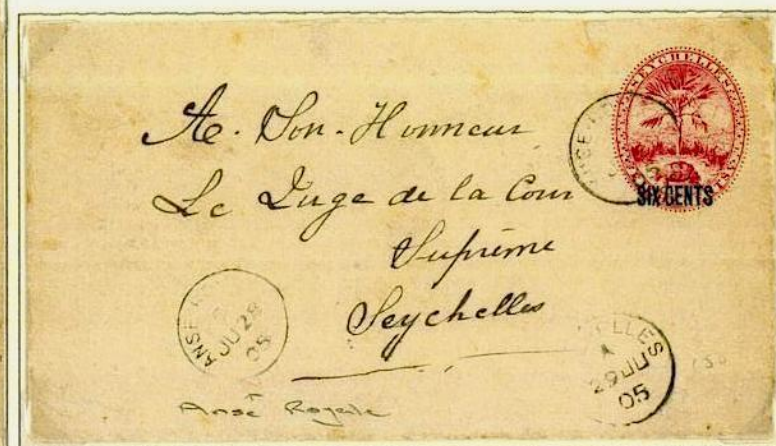 SEYCHELLES
SIX CENTS
A. Son. Honneur
Le Juge de la Cour
Suprême
Seychelles
ANSE
JU 28
05
ELLES
A
29 JU
05
Anse Royale